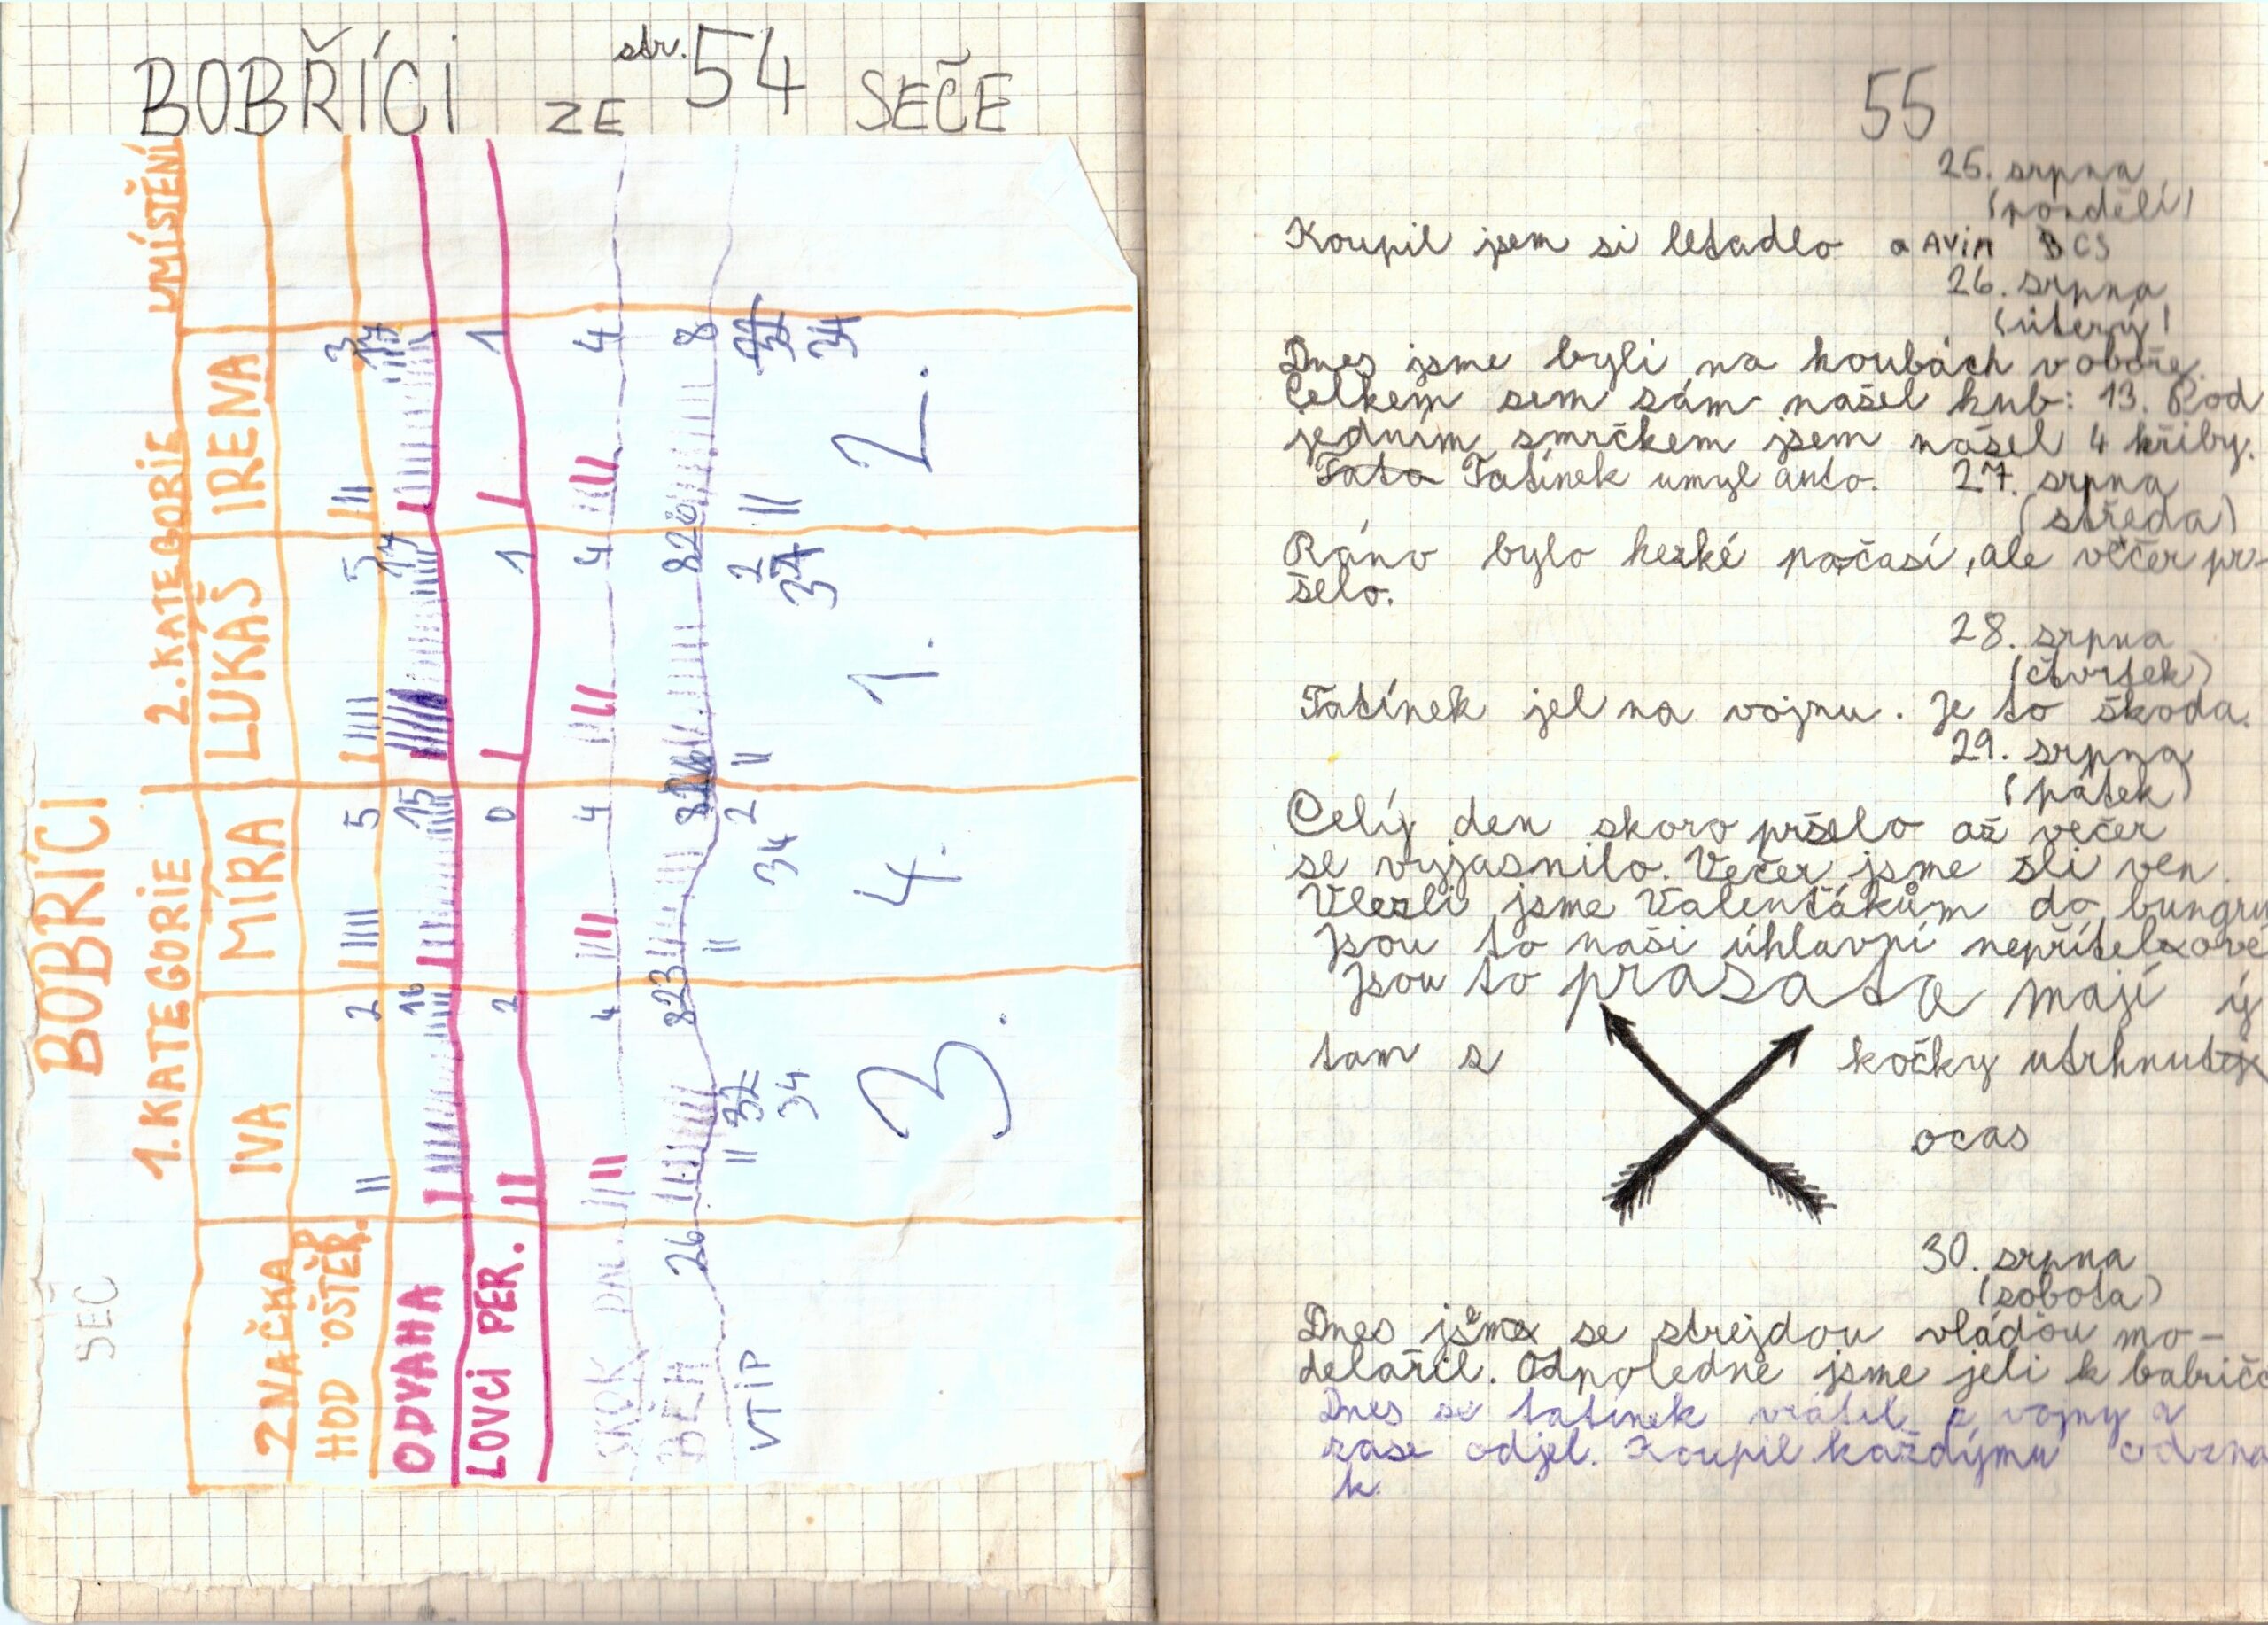 BOBŘÍCI ZE str. 54 SEČE
SEČ
BOBŘÍCI
1. KATEGORIE 2. KATEGORIE UMÍSTĚNÍ
ZNAČKA IVA MÍRA LUKÁŠ IRENA
HOD OŠTĚP. 2 5 5 3
ODVAHA 16 15 17 17
LOVCI PER. 2 0 1 1
SKOK 4 4 4 4
BĚH 26 823 8 820 8
VTIP 2 2
32 34 34 34 34
3. 4. 1. 2.
55
25. srpna
(pondělí)
Koupil jsem si letadlo a AViA BCS
26. srpna
(úterý)
Dnes jsme byli na houbách v oboře.
Celkem sem sám našel hub: 13. Pod
jedním smrčkem jsem našel 4 hřiby.
Tata Tatínek umyl auto. 27. srpna
(středa)
Ráno bylo hezké počasí, ale večer pr-
šelo.
28. srpna
(čtvrtek)
Tatínek jel na vojnu. Je to škoda.
29. srpna
(pátek)
Celý den skoro pršelo až večer
se vyjasnilo. Večer jsme šli ven.
Vlezli jsme Valentákům do bungru
Jsou to naši úhlavní nepřítelové
Jsou to prasata mají ý
tam z kočky utrhnutý
ocas
30. srpna
(sobota)
Dnes jsem se strejdou vláďou mo-
delařil. Odpoledne jsme jeli k babičc
Dnes se tatínek vrátil z vojny a
zase odjel. Koupil každýmu odzna
k.